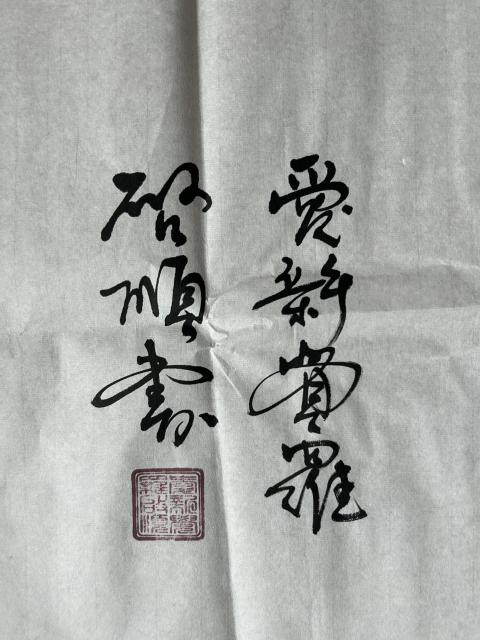 愛新覺羅
啟順書